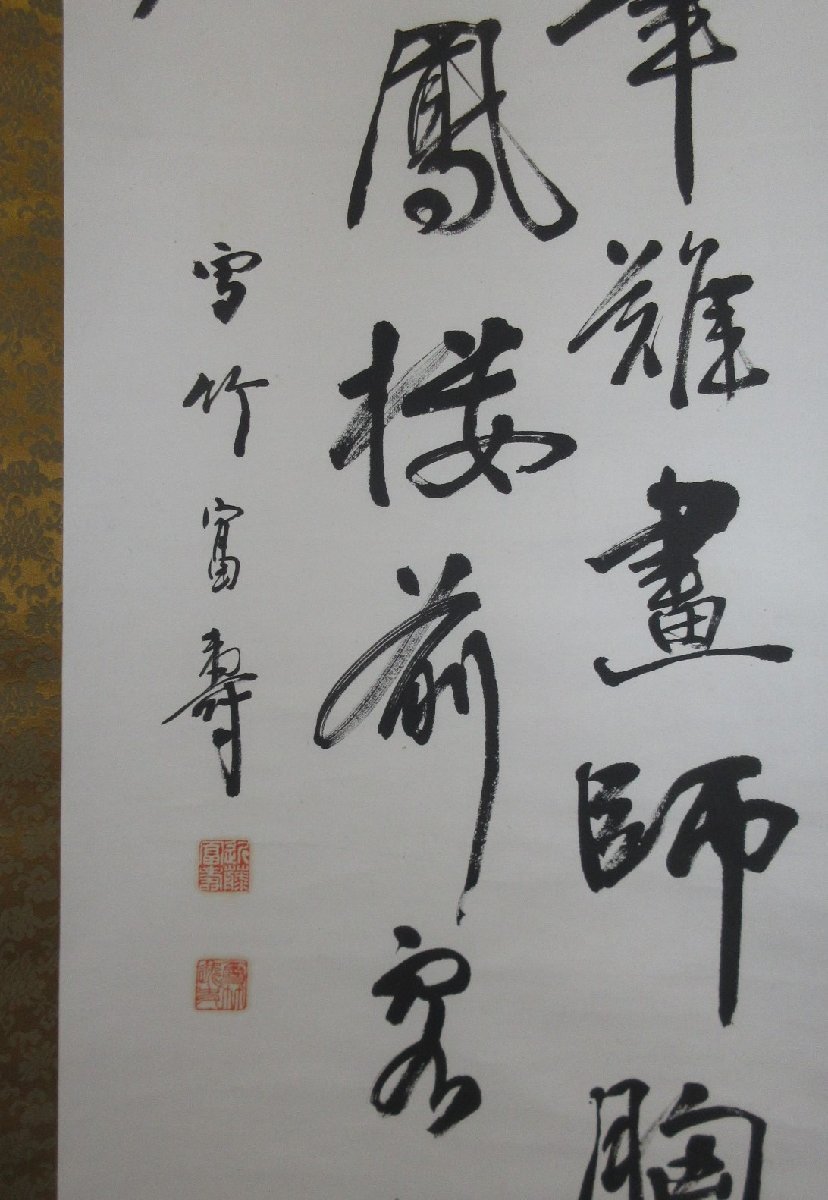 難畫師胸
鳳樓前客
雪竹富壽